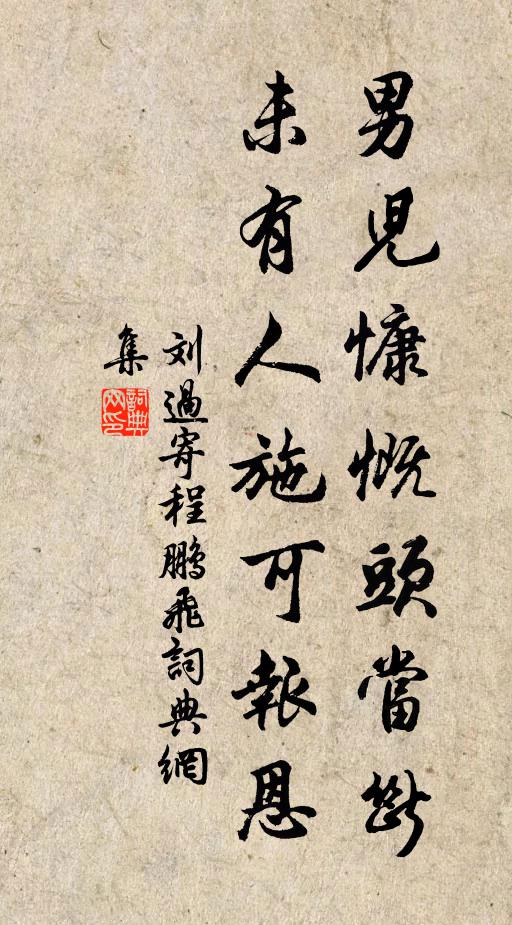 男兒慷慨頭當斷
未有人施可報恩
刘過寄程鵬飛詞典網
集
詞典网印